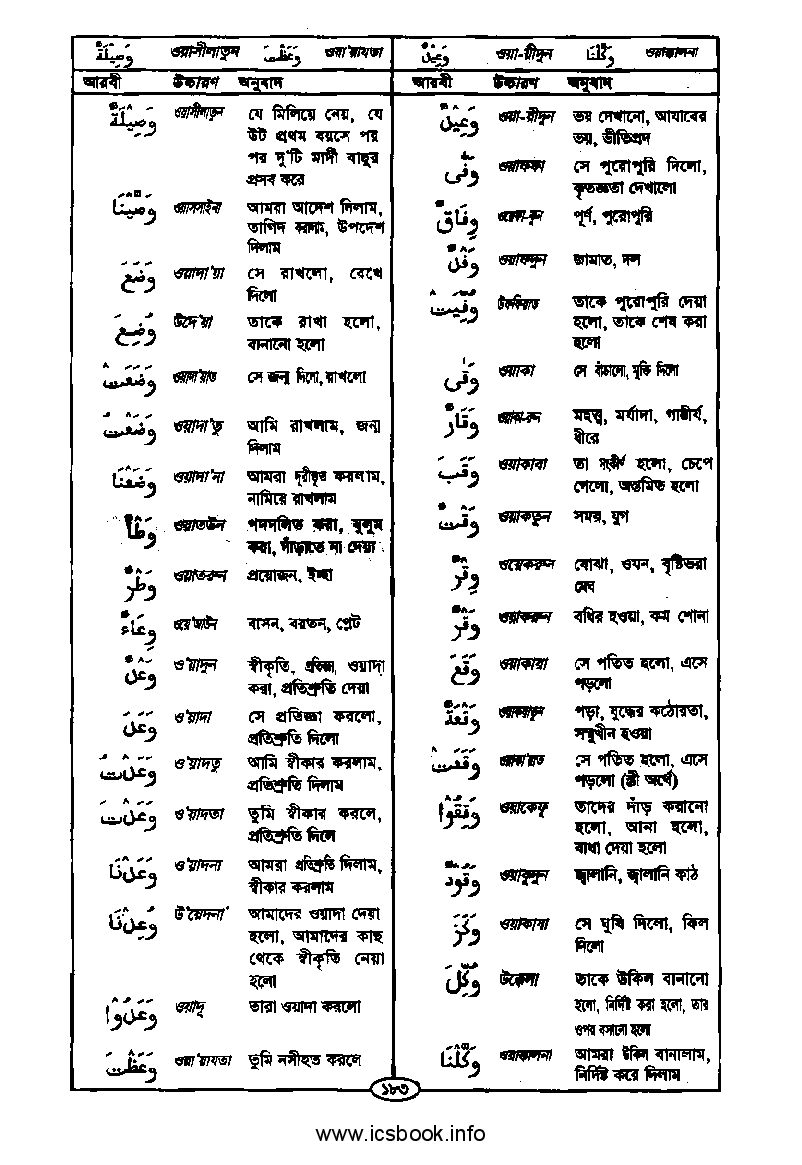 وَصِيلَةٌ ওয়াসীলাতুন وَعَظْتَ ওয়া'য়াযতা
আরবী উচ্চারণ অনুবাদ
وَصِيلَةٌ ওয়াসীলাতুন যে মিলিয়ে নেয়, যে
উট প্রথম বয়সে পর
পর দু'টি মাদী বাছুর
প্রসব করে
وَصَّيْنَا ওয়াসসাইনা আমরা আদেশ দিলাম,
তাগিদ করলাম, উপদেশ
দিলাম
وَضَعَ ওয়াদা'য়া সে রাখলো, রেখে
দিলো
وُضِعَ উদে'য়া তাকে রাখা হলো,
বানানো হলো
وَضَعَتْ ওয়াদা'য়াত সে জন্ম দিলো, রাখলো
وَضَعْتُ ওয়াদা'তু আমি রাখলাম, জন্ম
দিলাম
وَضَعْنَا ওয়াদা'না আমরা দূরীভূত করলাম,
নামিয়ে রাখলাম
وَطْأً ওয়াতউন পদদলিত করা, যুলুম
করা, দাঁড়াতে না দেয়া
وَطَرٌ ওয়াতরুন প্রয়োজন, ইচ্ছা
وِعَاءٌ বাসন, বরতন, প্লেট
وَعْدٌ ও'য়াদুন স্বীকৃতি, প্রতিজ্ঞা, ওয়াদা
করা, প্রতিশ্রুতি দেয়া
وَعَدَ ও'য়াদা সে প্রতিজ্ঞা করলো,
প্রতিশ্রুতি দিলো
وَعَدْتُ ও'য়াদতু আমি স্বীকার করলাম,
প্রতিশ্রুতি দিলাম
وَعَدْتَ ও'য়াদতা তুমি স্বীকার করলে,
প্রতিশ্রুতি দিলে
وَعَدْنَا ও'য়াদনা আমরা প্রতিশ্রুতি দিলাম,
স্বীকার করলাম
وُعِدْنَا উ'য়েদনা' আমাদের ওয়াদা দেয়া
হলো, আমাদের কাছ
থেকে স্বীকৃতি নেয়া
হলো
وَعَدُوا ওয়াদূ তারা ওয়াদা করলো
وَعَظْتَ ওয়া'য়াযতা তুমি নসীহত করলে
وَعِيْدٌ ওয়া-য়ীদুন وَكَّلْنَا ওয়াক্কালনা
আরবী উচ্চারণ অনুবাদ
وَعِيْدٌ ওয়া-য়ীদুন ভয় দেখানো, আযাবের
ভয়, ভীতিপ্রদ
وَفّٰى ওয়াফফা সে পুরোপুরি দিলো,
কৃতজ্ঞতা দেখালো
وِفَاقٌ পূর্ণ, পুরোপুরি
وَفْدٌ ওয়াফদুন জামাত, দল
وُفِّيَتْ উফফিয়াত তাকে পুরোপুরি দেয়া
হলো, তাকে শেষ করা
হলো
وَقٰى ওয়াকা সে বাঁচালো, মুক্তি দিলো
وَقَارٌ ওয়াকা-রুন মহত্ত্ব, মর্যাদা, গাম্ভীর্য,
ধীরে
وَقَبَ ওয়াকাবা তা সংকীর্ণ হলো, চেপে
গেলো, অস্তমিত হলো
وَقْتٌ ওয়াকতুন সময়, যুগ
وِقْرٌ ওয়েকরুন বোঝা, ওযন, বৃষ্টিভরা
মেঘ
وَقْرٌ ওয়াকরুন বধির হওয়া, কম শোনা
وَقَعَ ওয়াকায়া সে পতিত হলো, এসে
পড়লো
وَقْعَةٌ ওয়াকয়াতুন পড়া, যুদ্ধের কঠোরতা,
সম্মুখীন হওয়া
وَقَعَتْ ওয়াকা'য়াত সে পতিত হলো, এসে
পড়লো (স্ত্রী অর্থে)
وُقِفُوا ওয়াকেফূ তাদের দাঁড় করানো
হলো, আনা হলো,
বাধা দেয়া হলো
وَقُودٌ ওয়াকূদুন জ্বালানি, জ্বালানি কাঠ
وَكَزَ ওয়াকাযা সে ঘুষি দিলো, কিল
দিলো
وُكِّلَ উক্কেলা তাকে উকিল বানানো
হলো, নির্দিষ্ট করা হলো, তার
ওপর বসানো হলো
وَكَّلْنَا ওয়াক্কালনা আমরা উকিল বানালাম,
নির্দিষ্ট করে দিলাম
১৮৩
www.icsbook.info